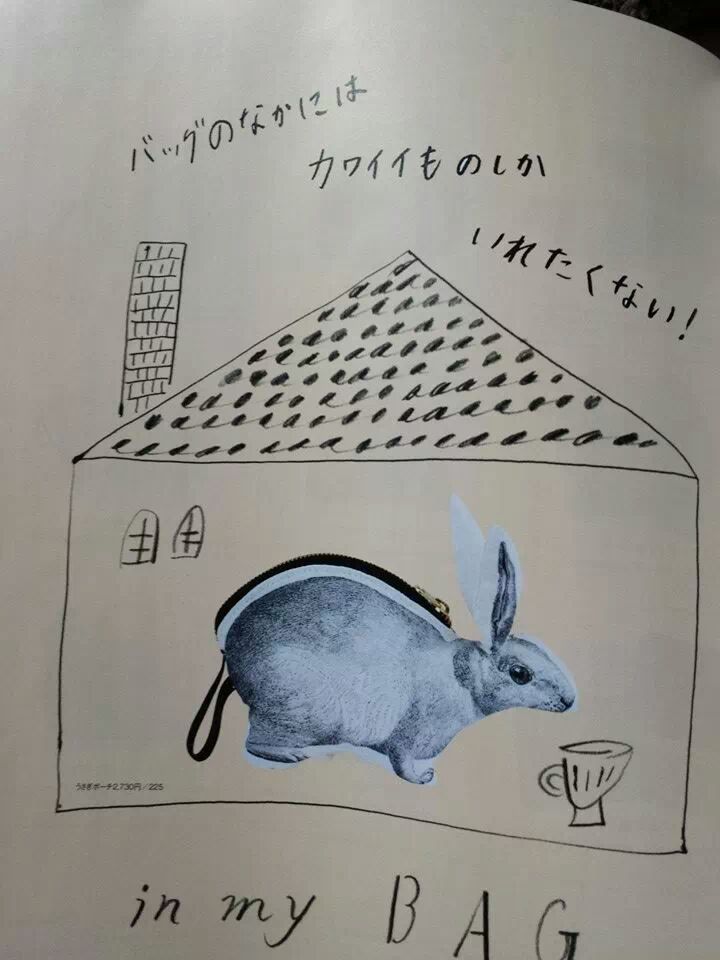 バッグのなかには
カワイイものしか
いれたくない!
うさぎポーチ2,730円/225
in my BAG